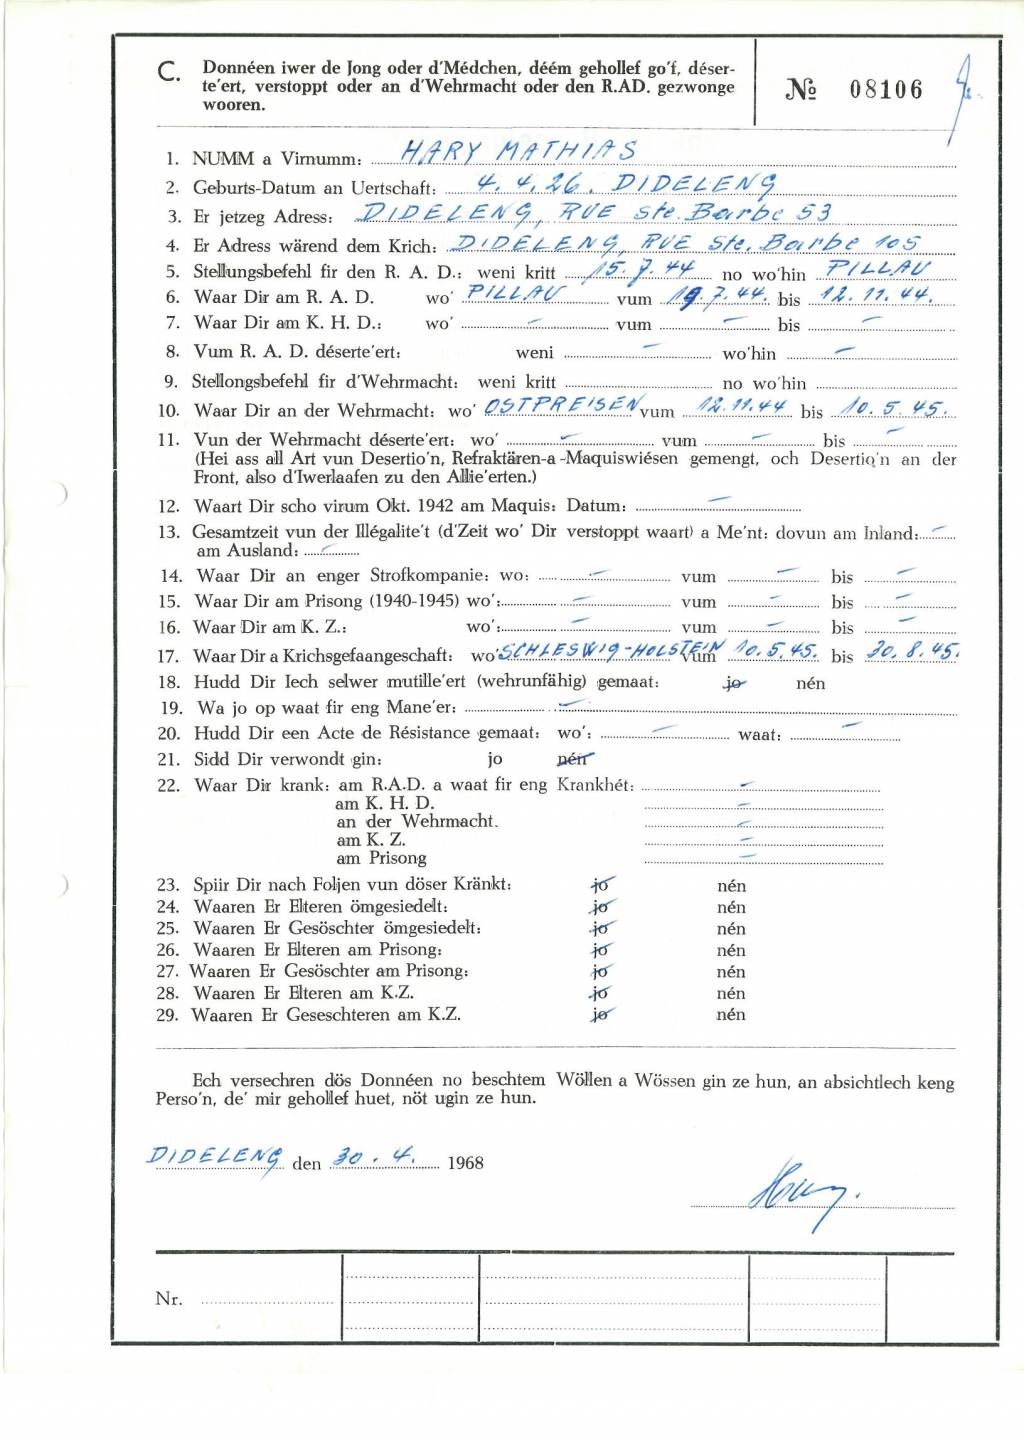 C. Donnéen iwer de Jong oder d'Médchen, déém gehollef go'f, déser-
te'ert, verstoppt oder an d'Wehrmacht oder den R.AD. gezwonge
wooren.
№ 08106
1. NUMM a Virnumm: HARY MATHIAS
2. Geburts-Datum an Uertschaft: 4. 4. 26. DIDELENG
3. Er jetzeg Adress: DIDELENG, RUE Ste. Barbe 53
4. Er Adress wärend dem Krich: DIDELENG, RUE Ste. Barbe 105
5. Stellungsbefehl fir den R. A. D.: weni kritt 15. 7. 44 no wo'hin PILLAU
6. Waar Dir am R. A. D. wo' PILLAU vum 19. 7. 44. bis 12. 11. 44.
7. Waar Dir am K. H. D.: wo' – vum – bis –
8. Vum R. A. D. déserte'ert: weni – wo'hin –
9. Stellongsbefehl fir d'Wehrmacht: weni kritt no wo'hin
10. Waar Dir an der Wehrmacht: wo' OSTPREISEN vum 12. 11. 44 bis 10. 5. 45.
11. Vun der Wehrmacht déserte'ert: wo' – vum – bis –
(Hei ass all Art vun Desertio'n, Refraktären-a -Maquiswiésen gemengt, och Desertio'n an der
Front, also d'Iwerlaafen zu den Allie'erten.)
12. Waart Dir scho virum Okt. 1942 am Maquis: Datum: –
13. Gesamtzeit vun der Illégalite't (d'Zeit wo' Dir verstoppt waart) a Me'nt: dovun am Inland: –
am Ausland: –
14. Waar Dir an enger Strofkompanie: wo: – vum – bis –
15. Waar Dir am Prisong (1940-1945) wo': – vum – bis –
16. Waar Dir am K. Z.: wo': – vum – bis –
17. Waar Dir a Krichsgefaangeschaft: wo' SCHLESWIG-HOLSTEIN vum 10. 5. 45. bis 30. 8. 45.
18. Hudd Dir Iech selwer mutille'ert (wehrunfähig) gemaat: jo nén
19. Wa jo op waat fir eng Mane'er: –
20. Hudd Dir een Acte de Résistance gemaat: wo': – waat: –
21. Sidd Dir verwondt gin: jo nén
22. Waar Dir krank: am R.A.D. a waat fir eng Krankhét: –
am K. H. D. –
an der Wehrmacht. –
am K. Z. –
am Prisong –
23. Spiir Dir nach Foljen vun döser Kränkt: jo nén
24. Waaren Er Elteren ömgesiedelt: jo nén
25. Waaren Er Gesöschter ömgesiedelt: jo nén
26. Waaren Er Elteren am Prisong: jo nén
27. Waaren Er Gesöschter am Prisong: jo nén
28. Waaren Er Elteren am K.Z. jo nén
29. Waaren Er Geseschteren am K.Z. jo nén
Ech versechren dös Donnéen no beschtem Wöllen a Wössen gin ze hun, an absichtlech keng
Perso'n, de' mir gehollef huet, nöt ugin ze hun.
DIDELENG den 30. 4. 1968
Hary.
Nr.